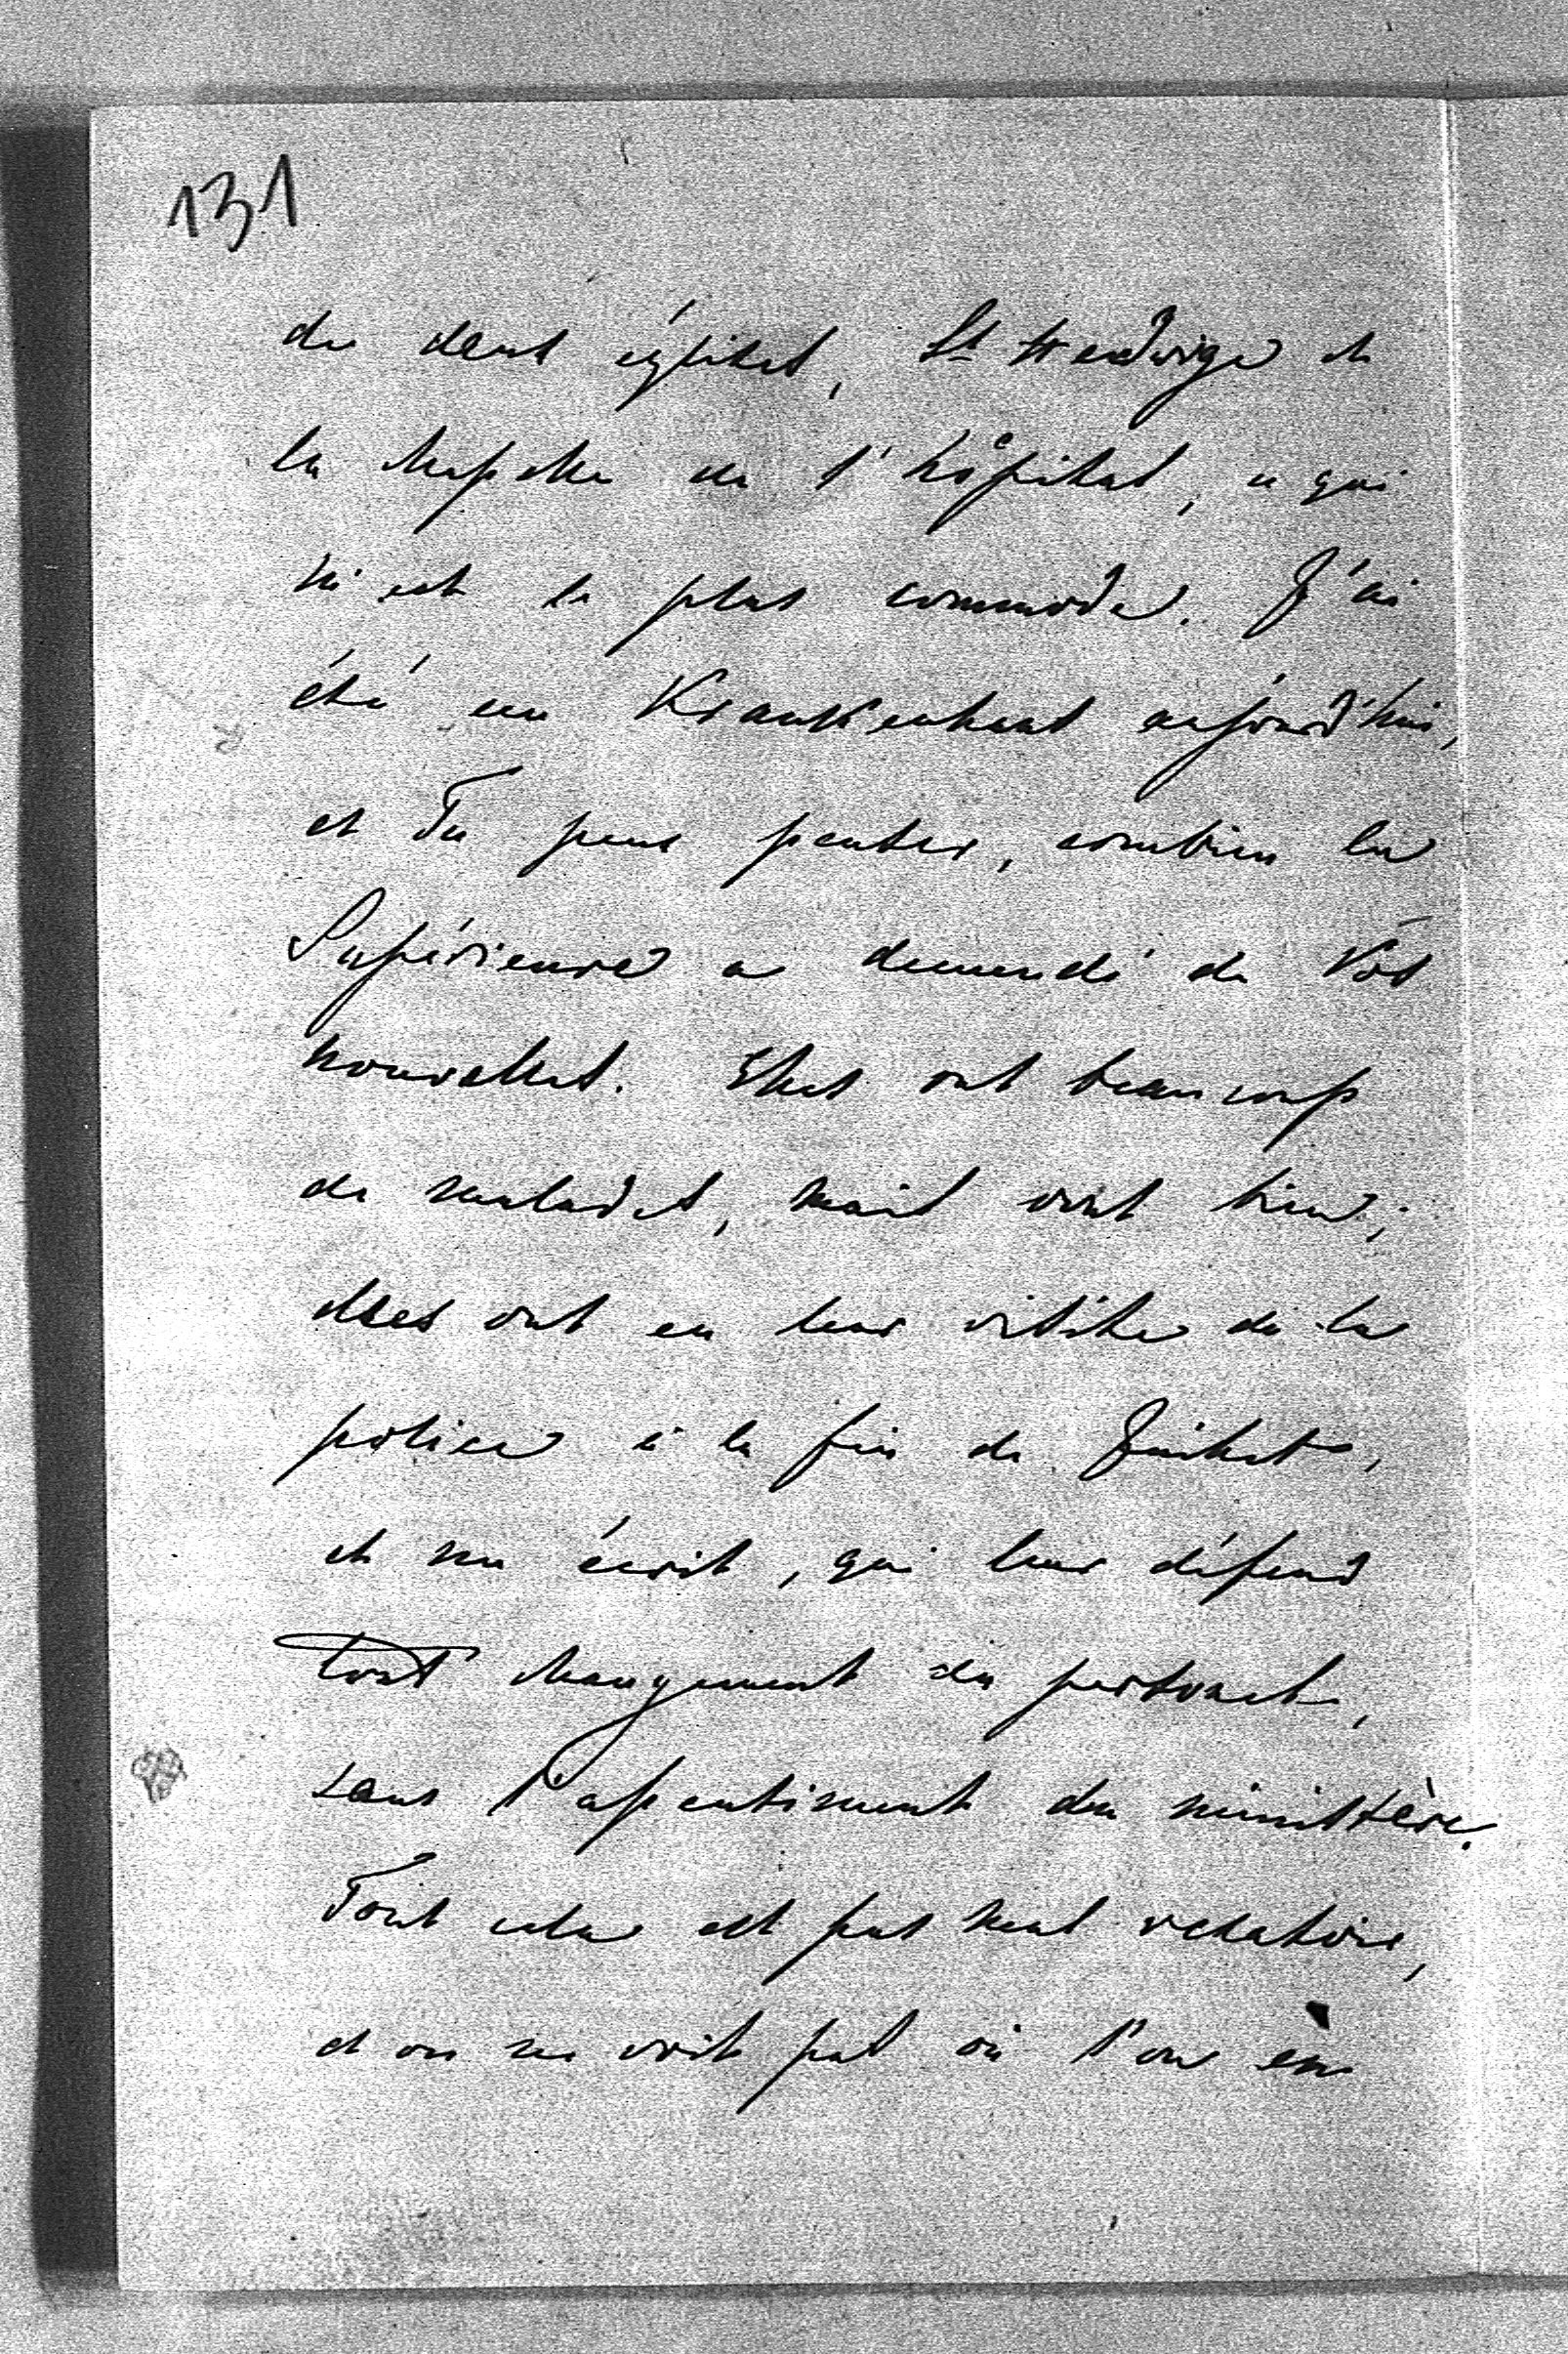 131
de deux églises, St Hedwige et
la chapelle de l'hôpital, ce qui
m'est le plus commode. J'ai
été au Krankenhaus aujourd'hui,
et Tu peux penser, combien la
Supérieure a demandé de Vos
nouvelles. Elles ont beaucoup
de malades, mais vont bien;
elles ont eu leur visite de la
police à la fin de Juillet,
et un écrit, qui leur défend
tout changement du personel,
sans l'assentiment du ministère.
Tout cela est pas mal vexatoire,
et on ne voit pas où l'on en